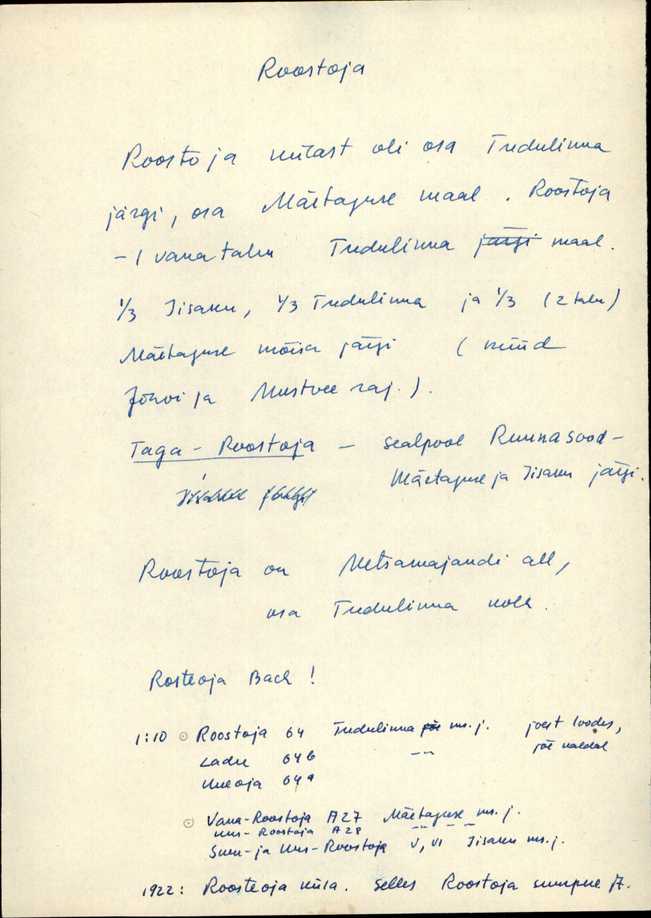 Roostoja
Roostoja külast oli osa Tudulinna
järgi, osa Mäetaguse maal. Roostoja
- 1 vana talu Tudulinna järgi maal.
1/3 Iisaku, 1/3 Tudulinna ja 1/3 (2 talu)
Mäetaguse mõisa järgi (nüüd
Jõhvi ja Mustvee raj.).
Taga-Roostoja - sealpool Ruunasood -
Mäetaguse ja Iisaku järgi.
Roostoja on Metsamajandi all,
osa Tudulinna kolh.
Rosteoja Bach!
1:10 Roostoja 64 Tudulinna ms. j. jõest loodes,
Ladu 64b -"- jõe kaldal
Uueoja 64a
Vana-Roostoja A27 Mäetaguse ms. j.
Uus-Roostoja A28 -"- -"-
Suur- ja Uus-Roostoja V, VI Iisaku ms. j.
1922: Roosteoja küla. Selles Roostoja